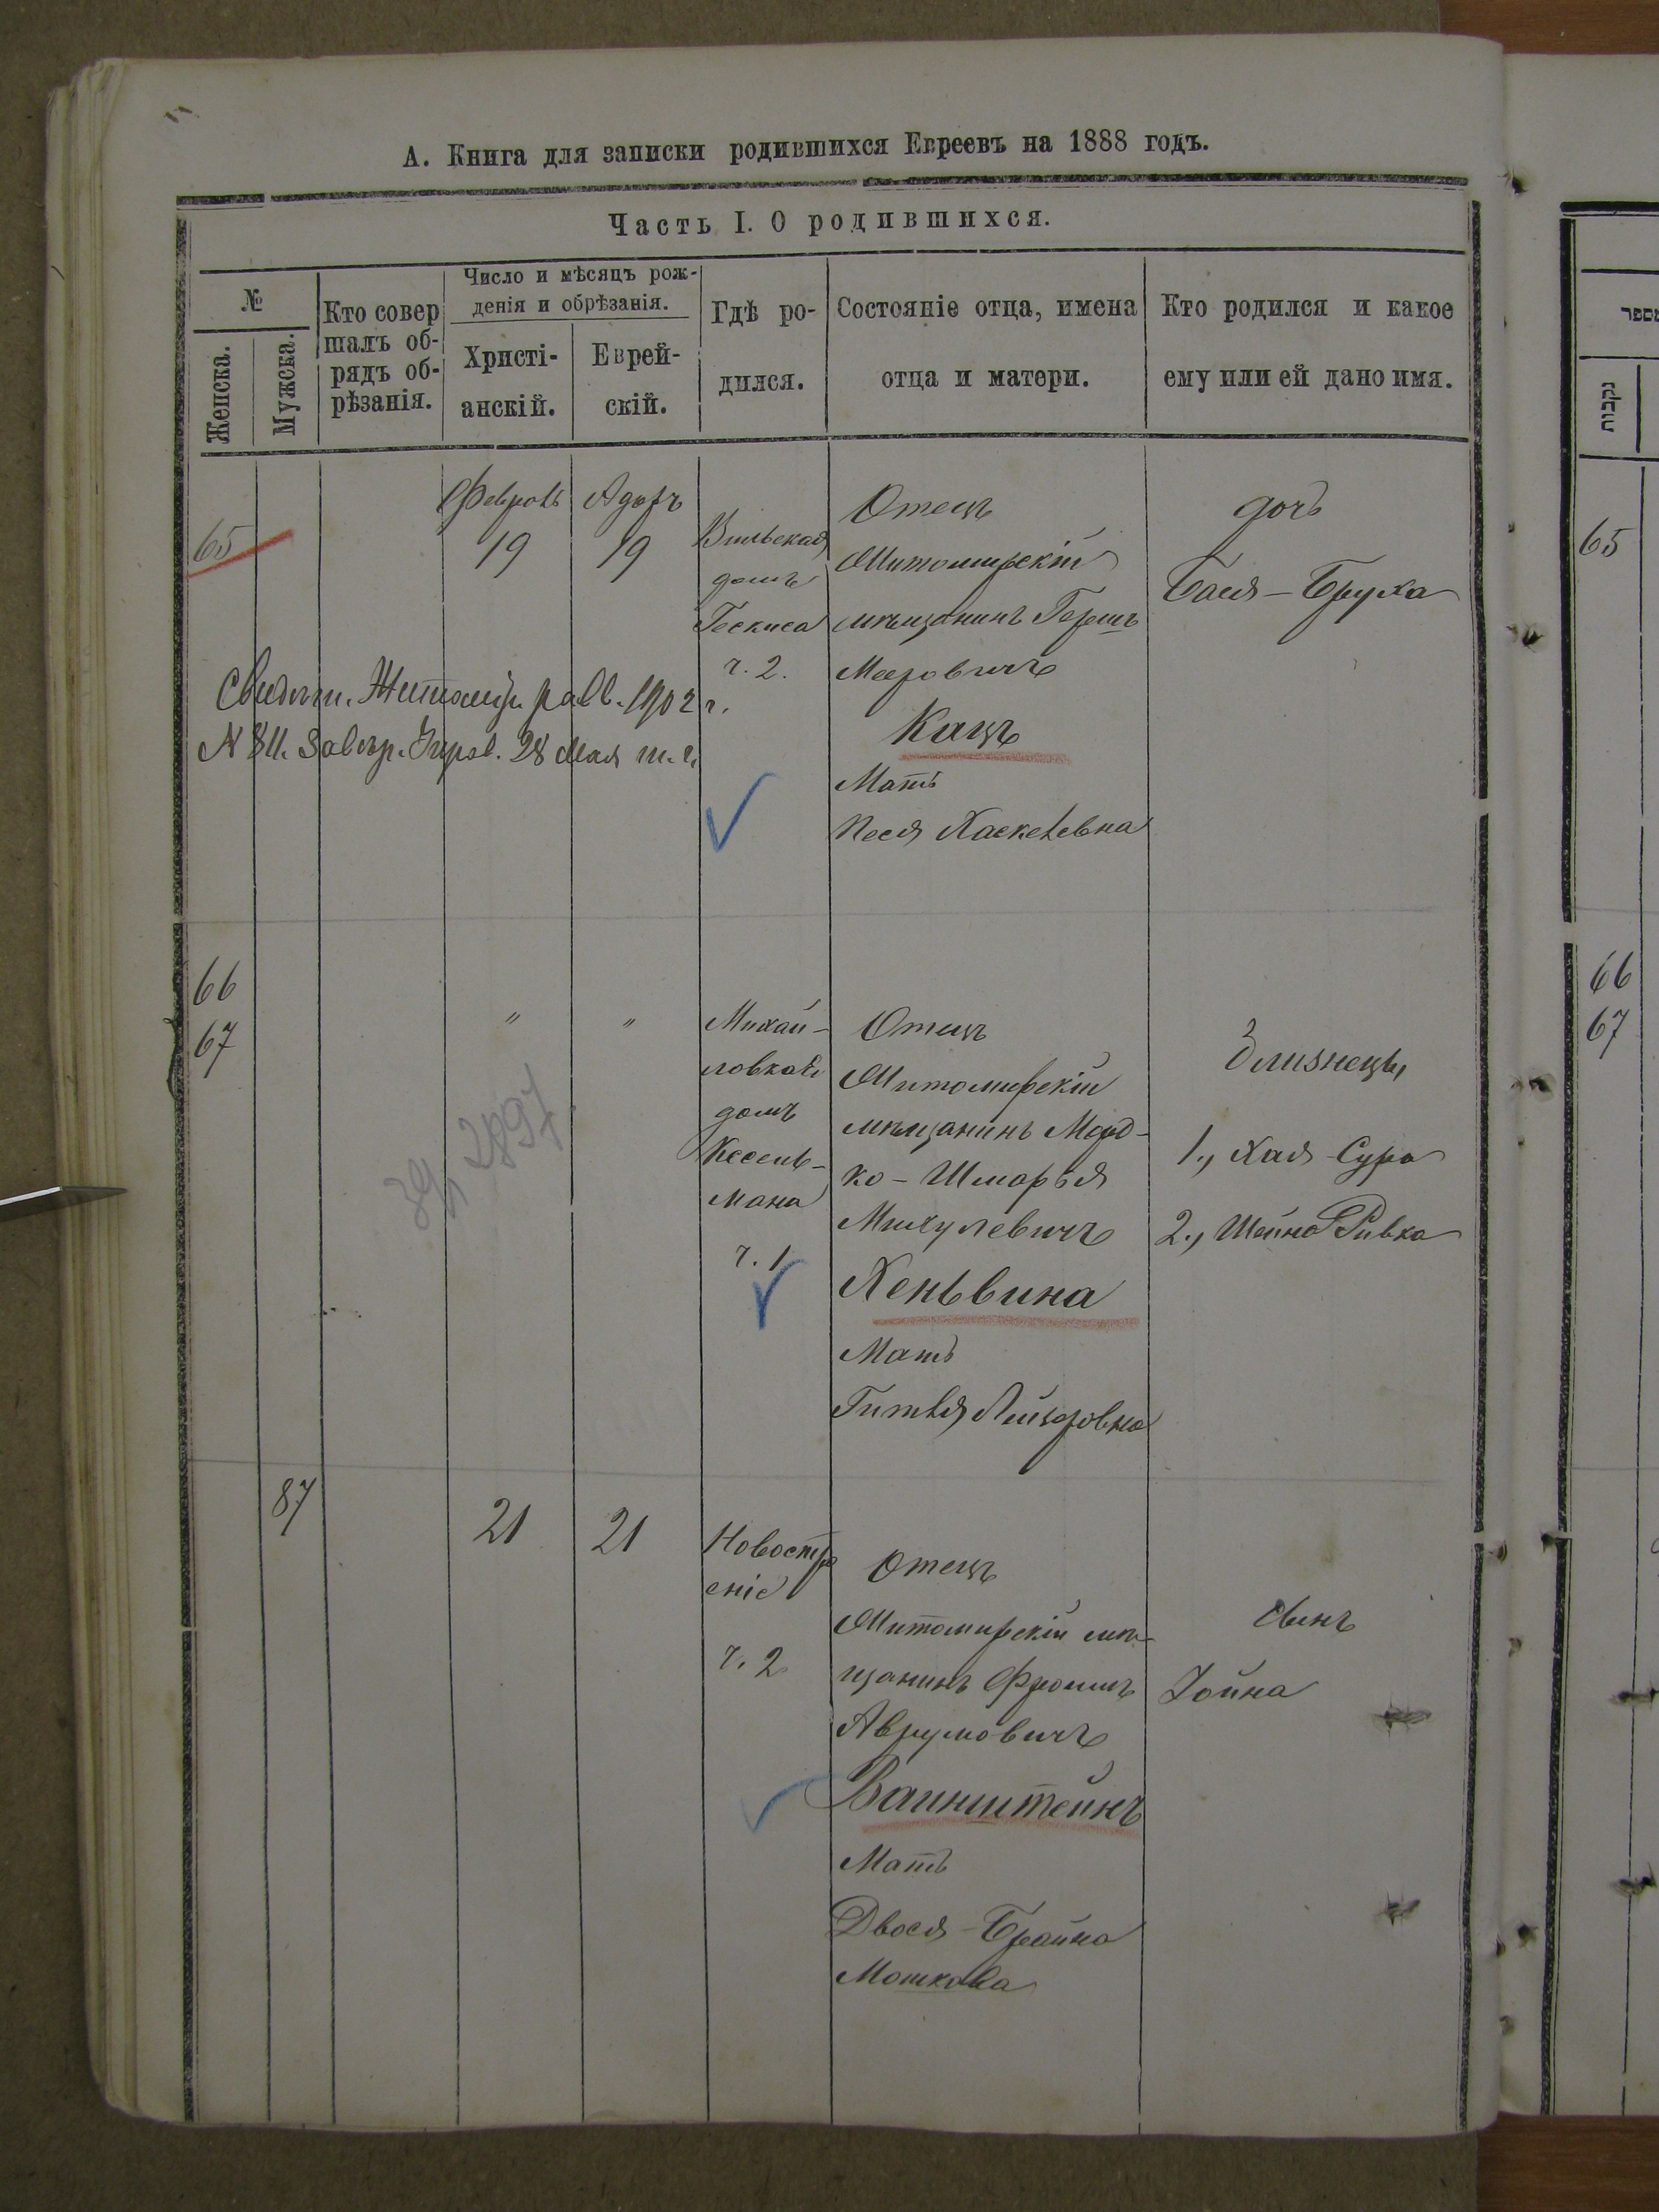 А. Книга для записки родившихся Евреевъ на 1888 годъ.
Часть I. О родившихся.
№
Женска.
Мужска.
Кто совер
шалъ об-
рядъ об-
рѣзанія.
Число и мѣсяцъ рож-
денія и обрѣзанія.
Христі-
анскій.
Еврей-
скій.
Гдѣ ро-
дился.
Состояніе отца, имена
отца и матери.
Кто родился и какое
ему или ей дано имя.
65
Февраль
19
Адаръ
19
Вильская
домъ
Гескиса
ч. 2.
Отецъ
Житомирскій
мѣщанинъ Гершъ
Мееровичъ
Кацъ
Мать
Песя Хаскелевна
дочь
Бася-Бруха
Житомир. равв. 1902 г.
28 мая т. г.
66
67
"
"
Михай-
ловская
домъ
Кесель-
мана
ч. 1
Отецъ
Житомирскій
мѣщанинъ Морд-
ко-Шмарья
Михулевичъ
Хеньвина
Мать
Гитля Лейзеровна
близнецы,
1., Хая-Сура
2., Шейна Ривка
2897
87
21
21
Новостро
еніе
ч. 2
Отецъ
Житомирскій мѣ-
щанинъ Фроимъ
Аврумовичъ
Вайнштейнъ
Мать
Двося-Брайна
Мошкова
сынъ
Іойна
מספר
נקבות
65
66
67